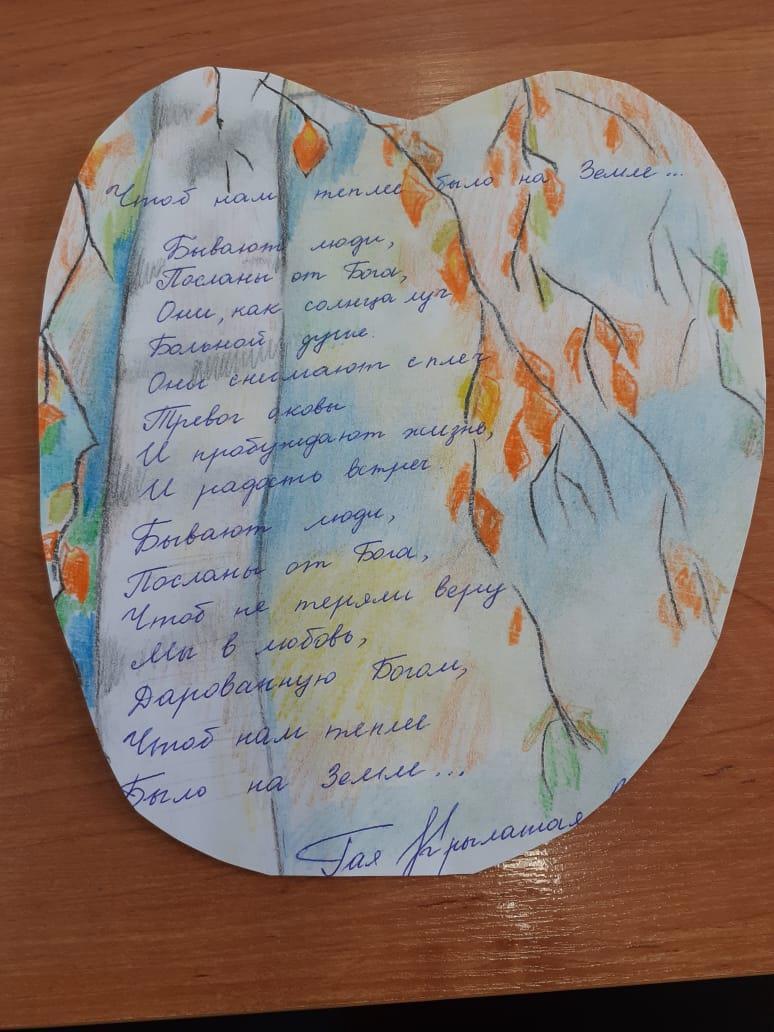 Чтоб нам теплее было на Земле...
Бывают люди,
Посланы от Бога,
Они, как солнца луч
Больной душе.
Они снимают с плеч
Тревог оковы
И пробуждают жизнь,
И радость встреч.
Бывают люди,
Посланы от Бога,
Чтоб не теряли веру
Мы в любовь,
Дарованную Богом,
Чтоб нам теплее
Было на Земле...
Гая Крылатая